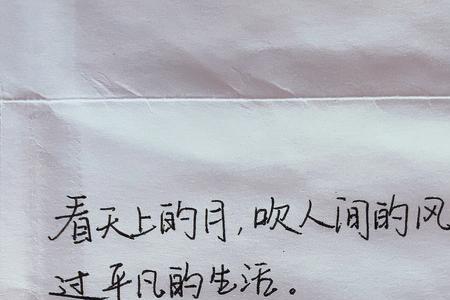 看天上的月,吹人间的风
过平凡的生活。